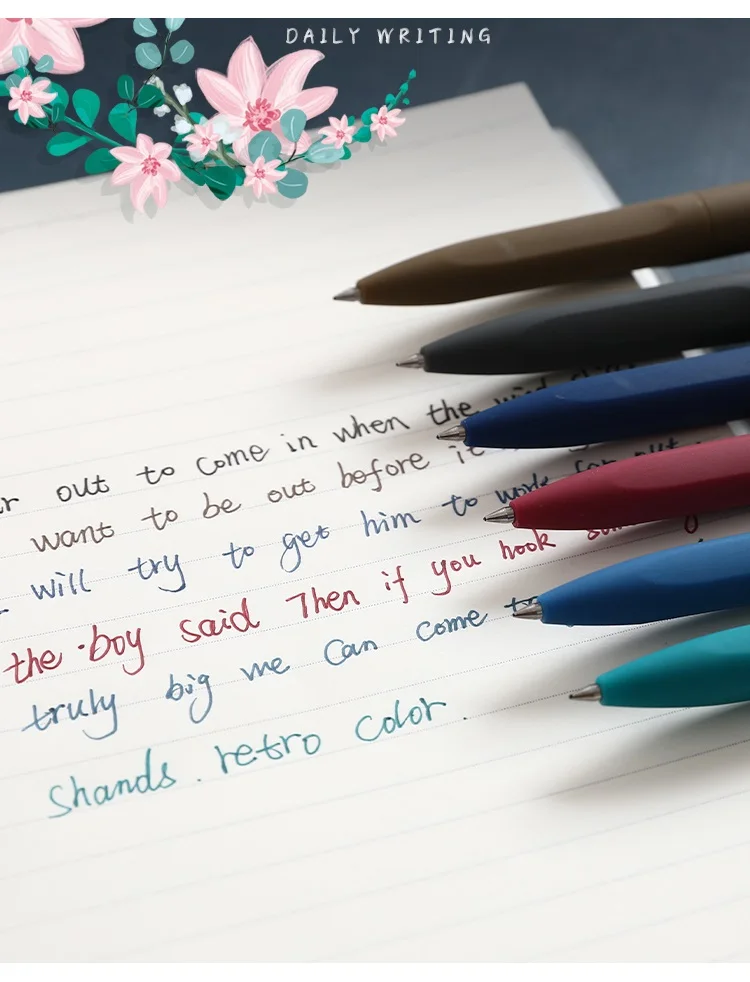 DAILY WRITING
out to come in when the wind
want to be out before it
will try to get him to work for out
the boy said Then if you hook
truly big me can come to
Shands. retro color.